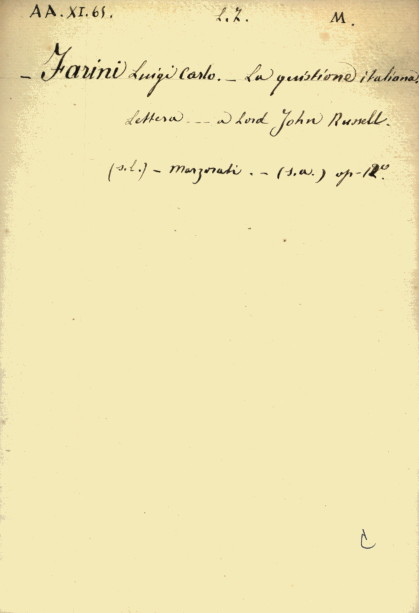 AA. XI. 65. L. Z. M.
- Farini Luigi Carlo. - La quistione italiana.
Lettera --- a Lord John Russell.
(s. l.) - Marzorati. - (s. a.) op-12°.
C